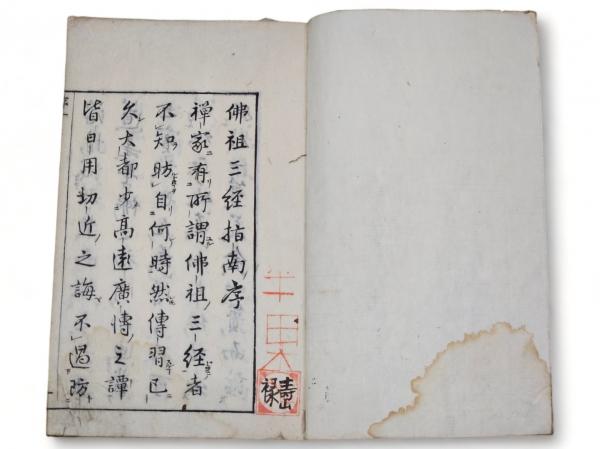 佛祖三經指南序
禪家有所謂佛祖三經者
不知昉自何時然傳習已
久大都少高遠廣博之譚
皆日用切近之誨不過防